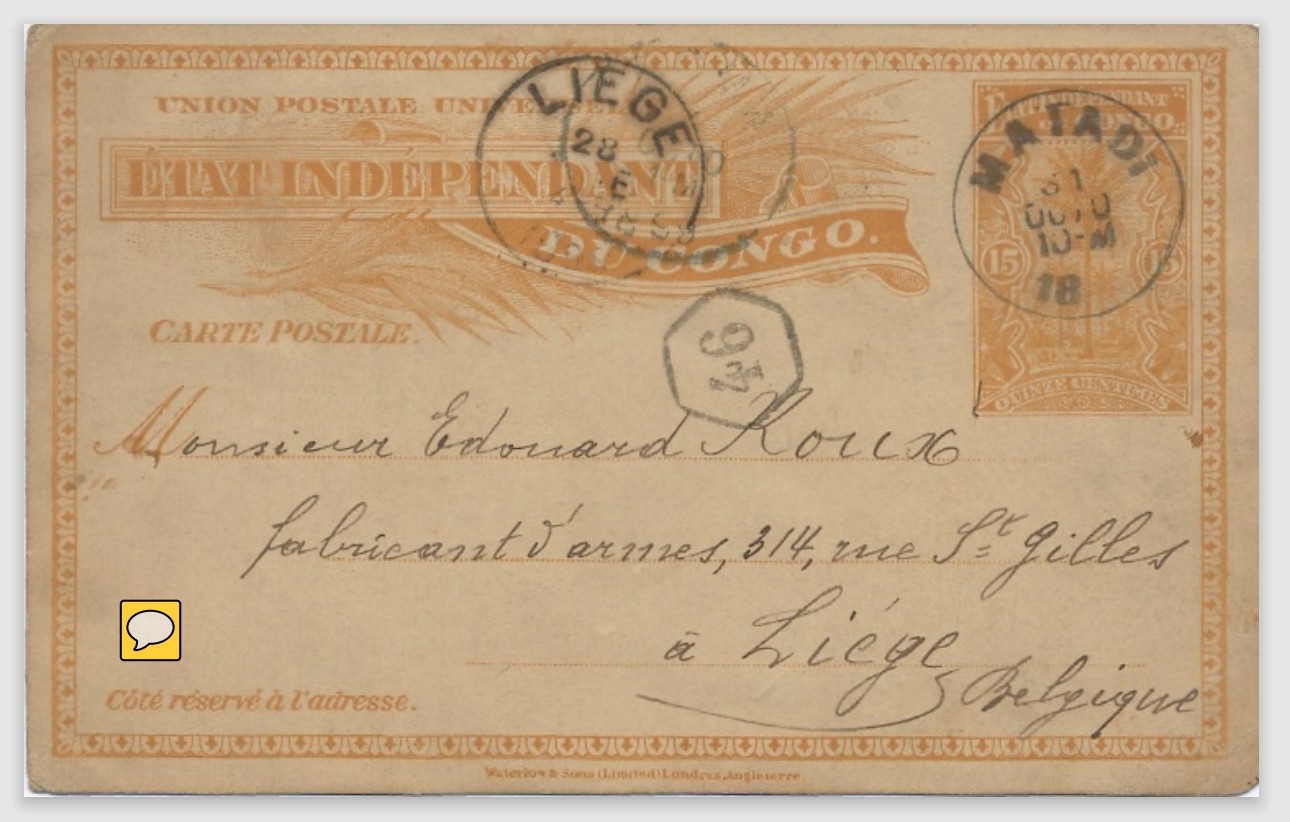 UNION POSTALE UNIVERSELLE
ÉTAT INDÉPENDANT
DU CONGO.
CARTE POSTALE.
LIEGE
28
MATADI
31
10-M
18
ÉTAT INDÉPENDANT
DU CONGO.
15 15
QUINZE CENTIMES
46
Monsieur Edouard Roux
fabricant d'armes, 314, rue St Gilles
à Liége
Belgique
Côté réservé à l'adresse.
Waterlow & Sons (Limited) Londres, Angleterre